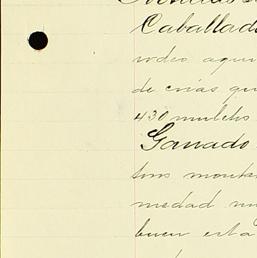 Caballad
rodeo aqui
de crias qu
430 muletos
Ganado
tos montes
medad mu
buen esta